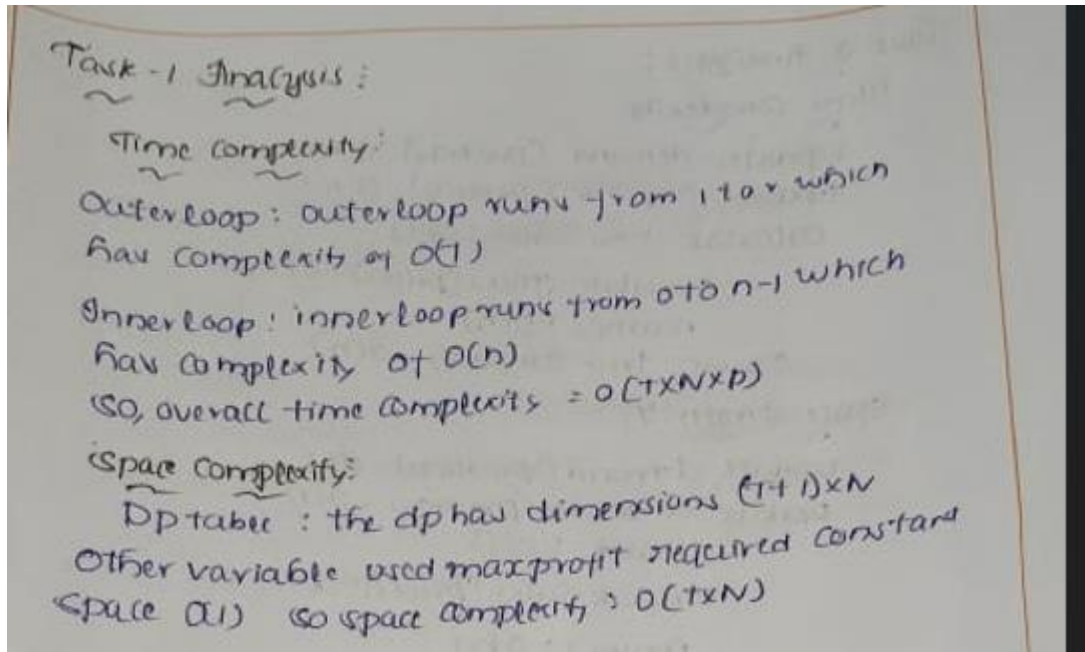 Task-1 Analysis:
Time complexity:
Outerloop: outerloop runs from 1 to r which
has complexity of O(T)
Innerloop: innerloop runs from 0 to n-1 which
has complexity of O(n)
So, overall time complexity = O(T×N×D)
Space complexity:
Dp table: the dp has dimensions (T+1)×N
Other variable used maxprofit required constant
space O(1) so space complexity: O(T×N)